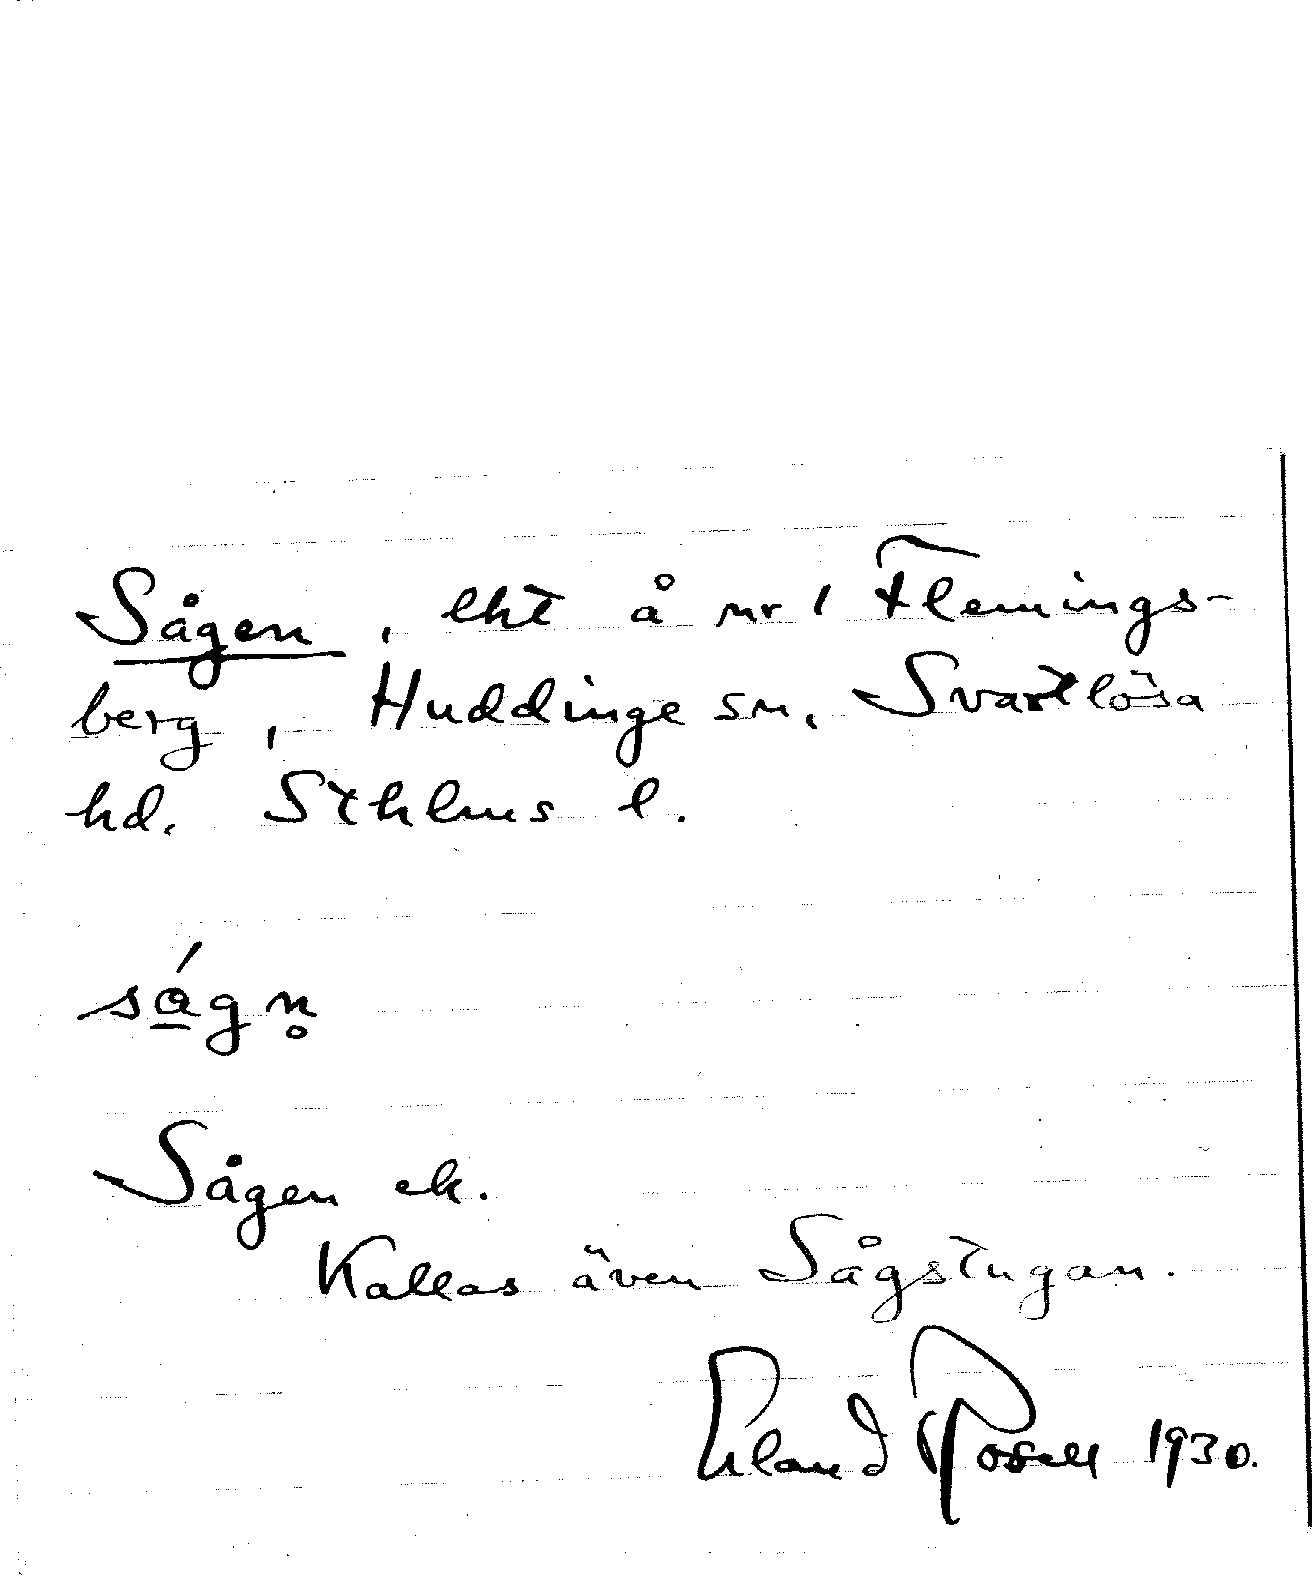 Sågen, lht å nr 1 Flemings-
berg, Huddinge sn, Svartlösa
hd. Sthlms l.
ság̱n̥
Sågen ek.
Kallas även Sågstugan.
Erland Rosell 1930.